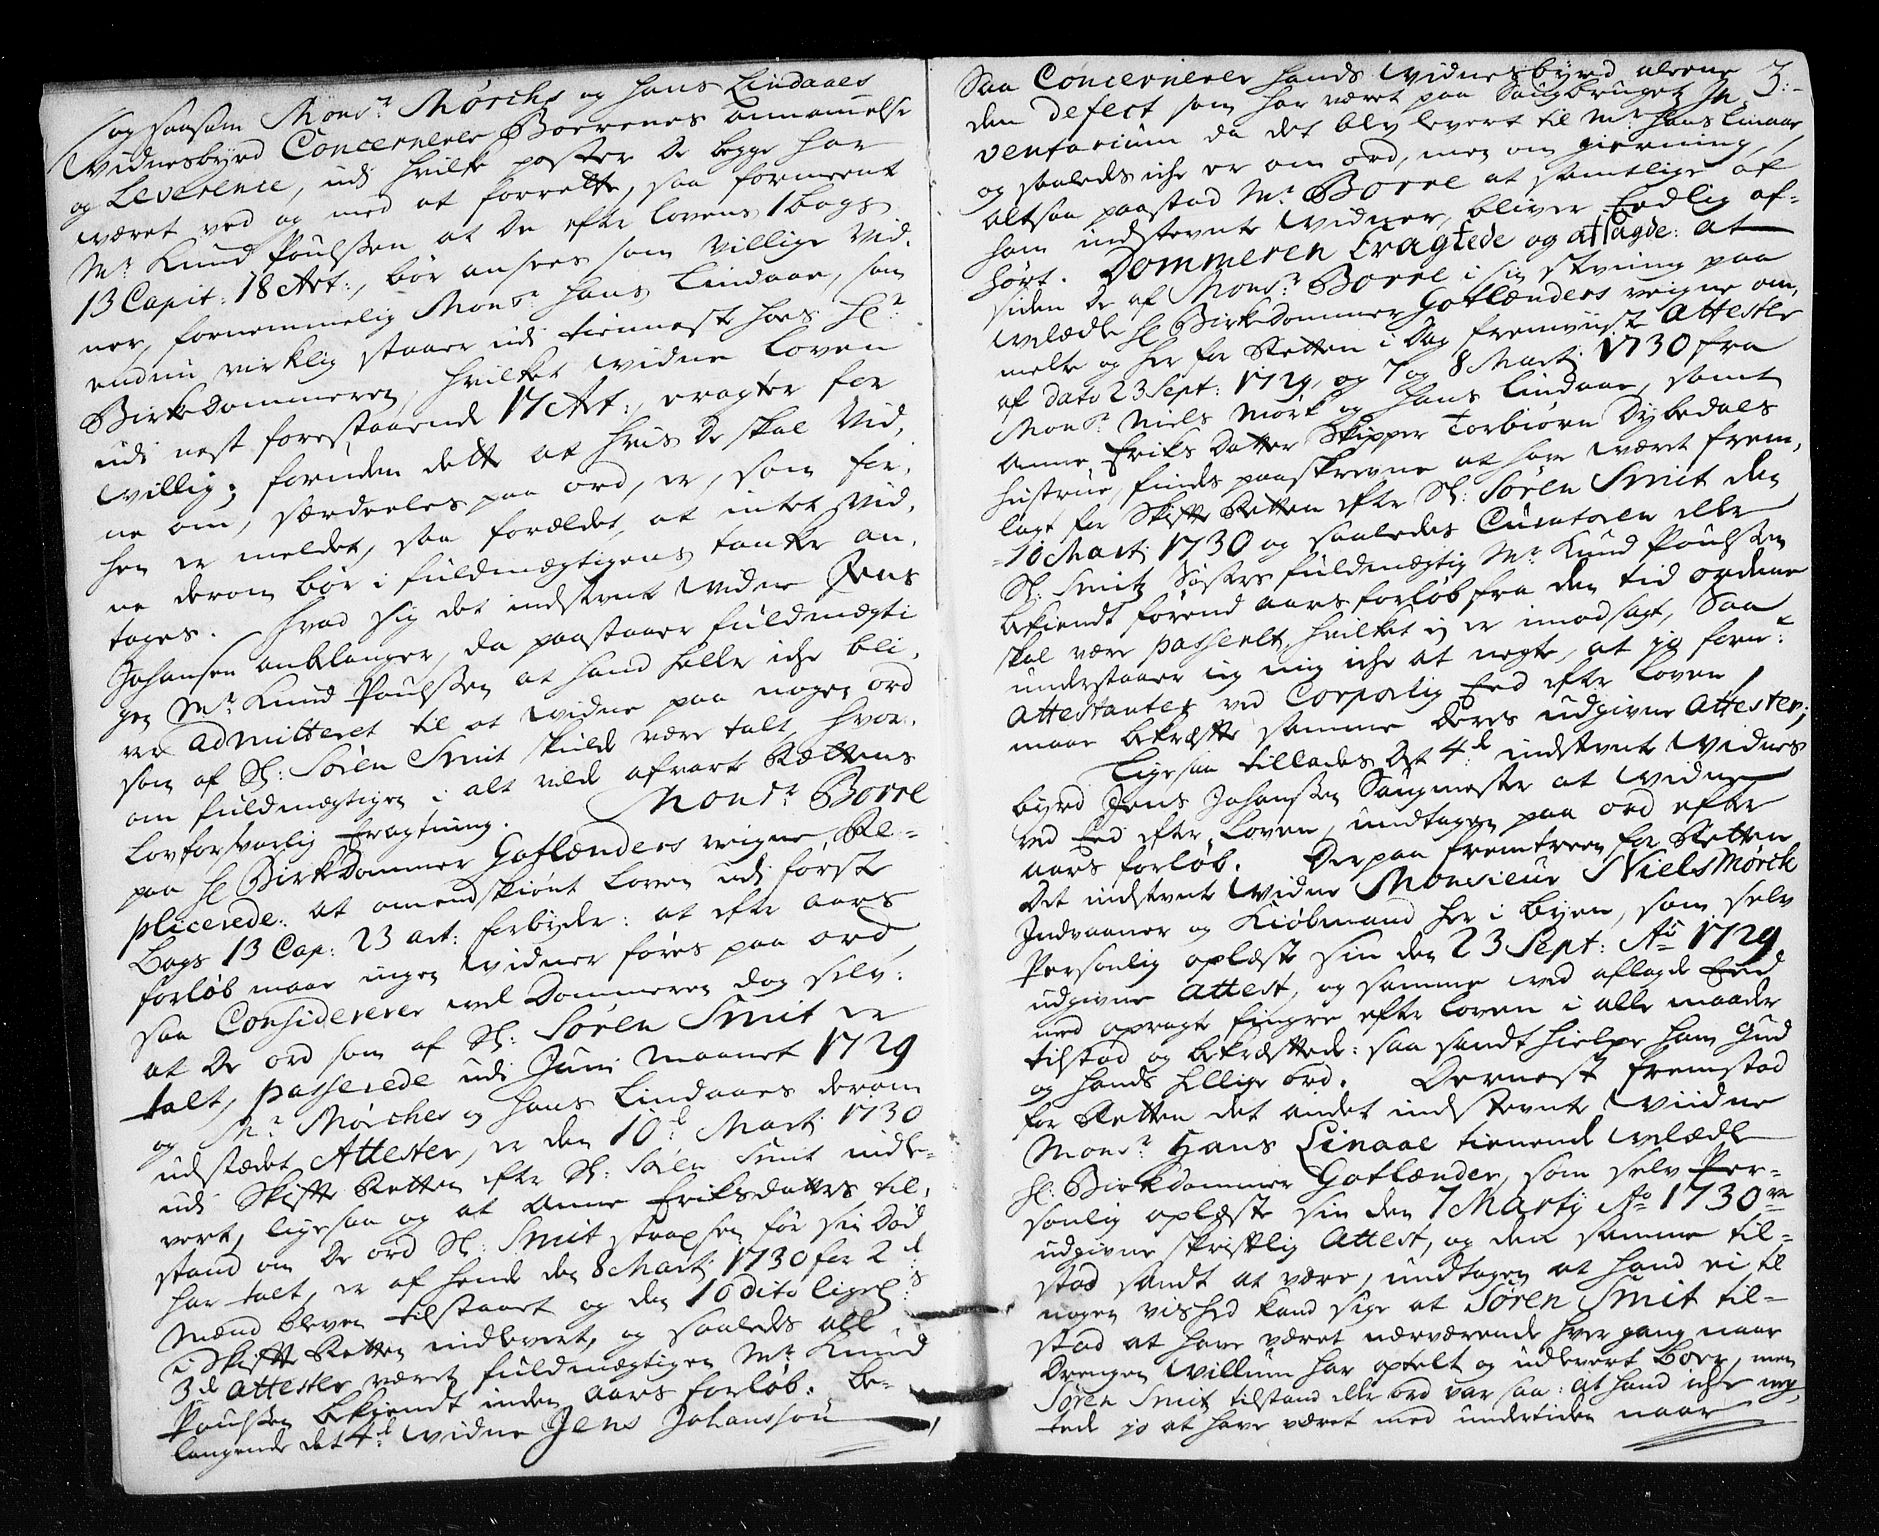 og saasom Mons.r Mørchs og Hans Lindaaes
Widnesbyrd Concernerer Boerenes annammelse
og Leverence, udj hvilke poster De begge har
wæret ved og med at forrette, saa formeent
M.r Knud Poulssen at De efter Lovens 1 bogs
13 Capit: 18 Art:, bør ansees som villige Vid,
ner, fornemmelig Mons.r Hans Lindaae, som
endnu virklig staaer udj tienneste hoes H.r
Birkedommeren, hvilket widne Loven
udj nest forestaaende 17 Art:, eragter for
willig; foruden dette at hvis De skal Vid,
ne om, særdeeles paa ord, er, som før,
hen er meldet, saa forældet, at intet Vid,
ne derom bør i fuldmægtigens tanke an,
tages. Hvad sig det indstevnte widne Jens
Johansen anbelanger, da paastaaer fuldmægti
gen M.r Knud Poulssen at hand heller iche bli,
ver admitteret til at widne paa nogen ord
som af Sl: Søren Smit skulde være talt, hvor,
om fuldmægtigen i alt vilde afvarte Rettens
Lovforsvarlig Eragtning. Mons.r Borre
paa H.r BirkDommer Gotlænders veigne, Re-
plicerede: at omendskiønt Loven udj første
Bogs 13 Cap: 23 art: forbyder: at efter aars
forløb maae ingen widner føres paa ord,
saa Considererer wel Dommeren dog selv:
at De ord som af Sl: Søren Smit er
talt, passerede udj Junj maanet 1729
og M.r Mørches og Hans Lindaaes derom
udstædet Attester, er den 10.de Martj 1730
udj Skifte Retten efter Sl: Søren Smit indle-
vert, ligesaa og at Anne Eriksdatters til,
stand om De ord Sl: Smit strax før sin Død
har talt, er af hende den 8 Martj 1730 for 2.de
Mænd bleven tilstaaet og den 10 dito ligel:s
i Skifte Retten indlevert, og saaledes alle
3.de attester været fuldmægtigen M.r Knud
Poulssen bekiendt inden aars forløb. Be-
langende det 4.de Widne Jens Johanssøn
3:
Saa Concernerer hands Widnesbyrd aleene
den Defect som har wæret paa Saugbrugetz In,
ventarium da det blev levert til M.r Hans Linaae,
og saaledes iche er om ord, men om gierning,
altsaa paastod M.r Borre at samtlige af
ham indstevnte Widner, bliver Eedlig af-
hørt. Dommeren Eragtede og afsagde: at
siden De af Mons.r Borre i sin stevning paa
welædle H.r BirkeDommer Gotlænders veigne om,
melte og her for Retten i Dag fremviiste Attester
af Dato 23 Sept: 1729, og 7 og 8 Martj 1730 fra
Mons.r Niels Mørk og Hans Lindaae, samt
Anne Eriks Datter Skipper Torbiørn Dybedals
hustrue, findes paaskrevne at have været frem,
lagt for Skifte Retten efter Sl: Søren Smit den
10 Martj 1730 og saaledes Curatoren eller
Sl: Smitz Søsters fuldmægtig M.r Knud Poulssen
bekiendt førend aars forløb fra den tid ordene
skal være passerlt, hvilket ej er imodsagt, Saa
understaaer ieg mig iche at negte, at jo forn.te
Attestanter ved Corporlig Eed efter Loven
maae bekræfte samme Deres udgivne Attester;
Ligesaa tillades det 4.de indstevnte Widnes
byrd Jens Johanssen Saugmester at widne
ved Eed efter Loven, undtagen paa ord efter
aars forløb. Derpaa fremtreen for Retten
Det indstevnte Widne Monsieur Niels Mørch
Indvaaner og Kiøbmand her i Byen, som selv
Personlig oplæste sin den 23 Sept: Aō 1729
udgivne Attest, og samme ved aflagde Eed
med opragte fingre efter Loven i alle maader
tilstod og bekræftede: saa sandt hielpe ham Gud
og hands hellige ord. Dernest fremstod
for Retten det andet indstevnte Widne
Mons.r Hans Linaae tienende welædle
H.r BirkDommer Gotlænder, som selv Per-
sonlig oplæste sin den 7 Martj Aō 1730
udgivne skriftlig Attest, og den samme til-
stod sandt at være, undtagen at hand ei til
nogen vished kand sige at Søren Smit til-
stod at have været nærværende hver gang naar
Drengen Willum har optelt og udlevert Boer, men
Søren Smitz tilstand eller ord var saa: at hand iche neg,
tede jo at have været med undertiden naar